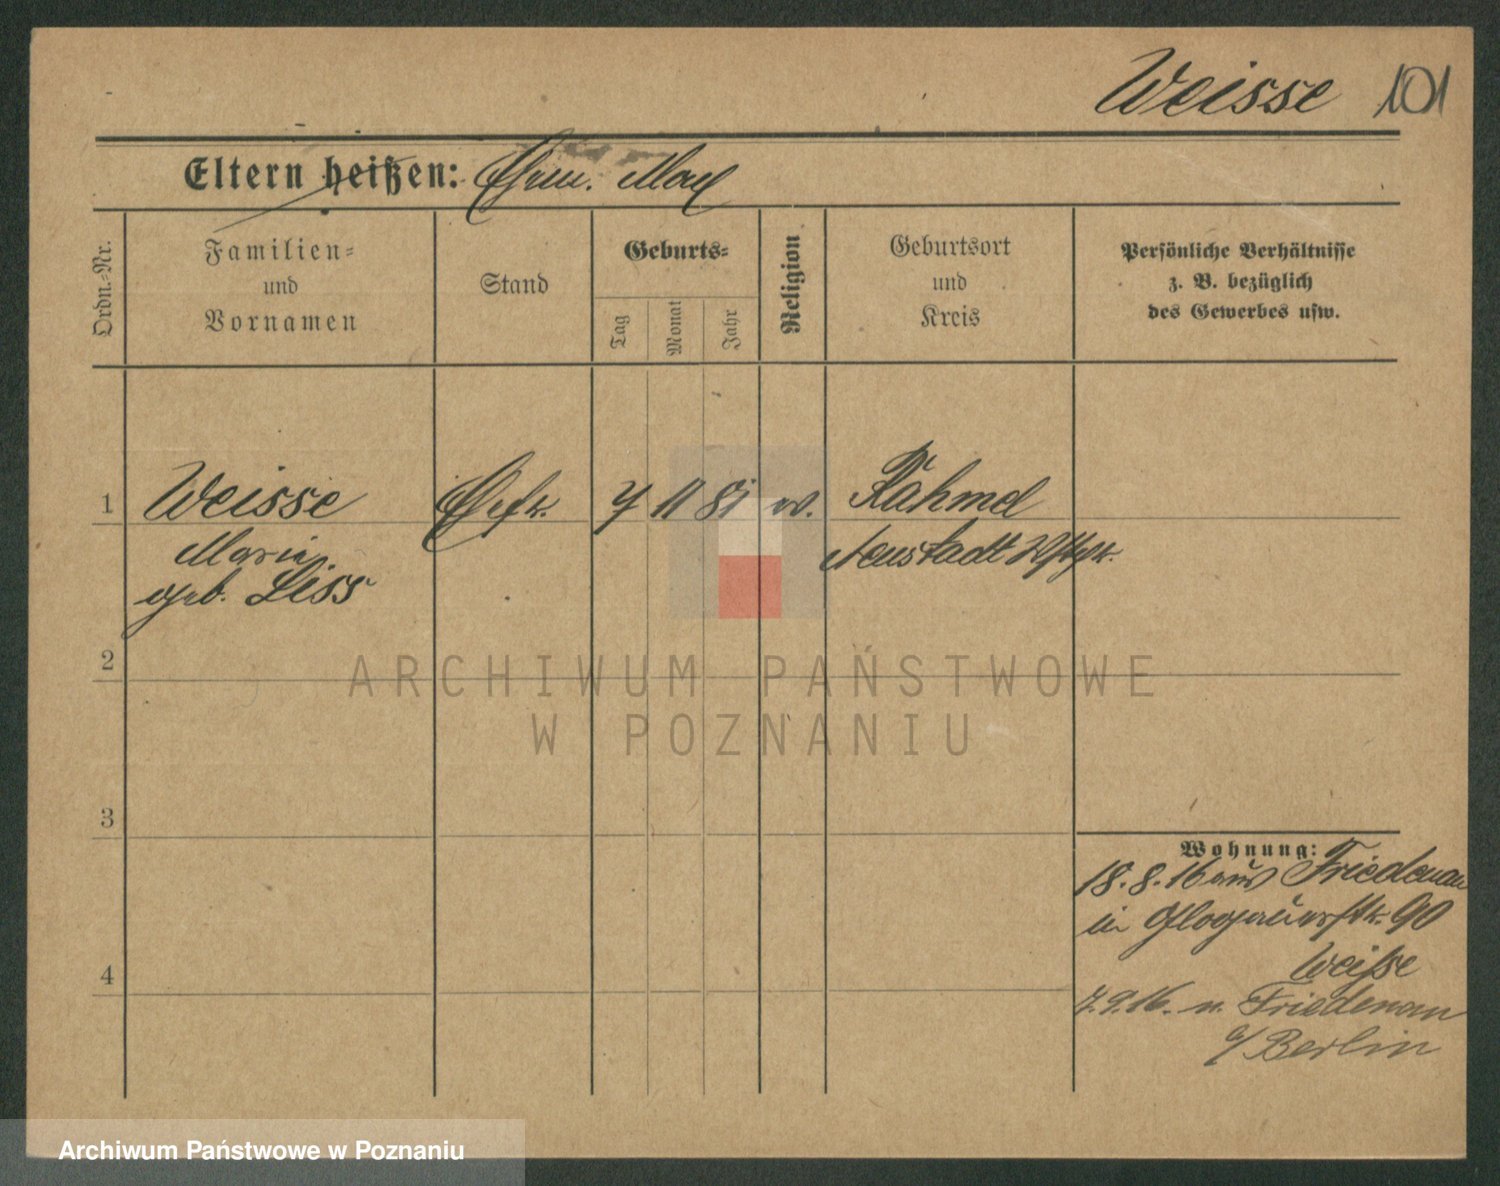 Weisse 101
Eltern heißen: Ehem. Max
Ordn.-Nr.
Familien-
und
Vornamen
Stand
Geburts-
Tag
Monat
Jahr
Religion
Geburtsort
und
Kreis
Persönliche Verhältnisse
z. B. bezüglich
des Gewerbes usw.
1 Weisse Ehefr. 7 11 81 ev. Rahmel
Marie Neustadt Wstpr.
geb. Liss
2
3
4
Wohnung:
18.8.16 aus Friedenau
in Glogauerstr. 90
Weiße
7.9.16. n. Friedenau
b/ Berlin
ARCHIWUM PAŃSTWOWE
W POZNANIU
Archiwum Państwowe w Poznaniu